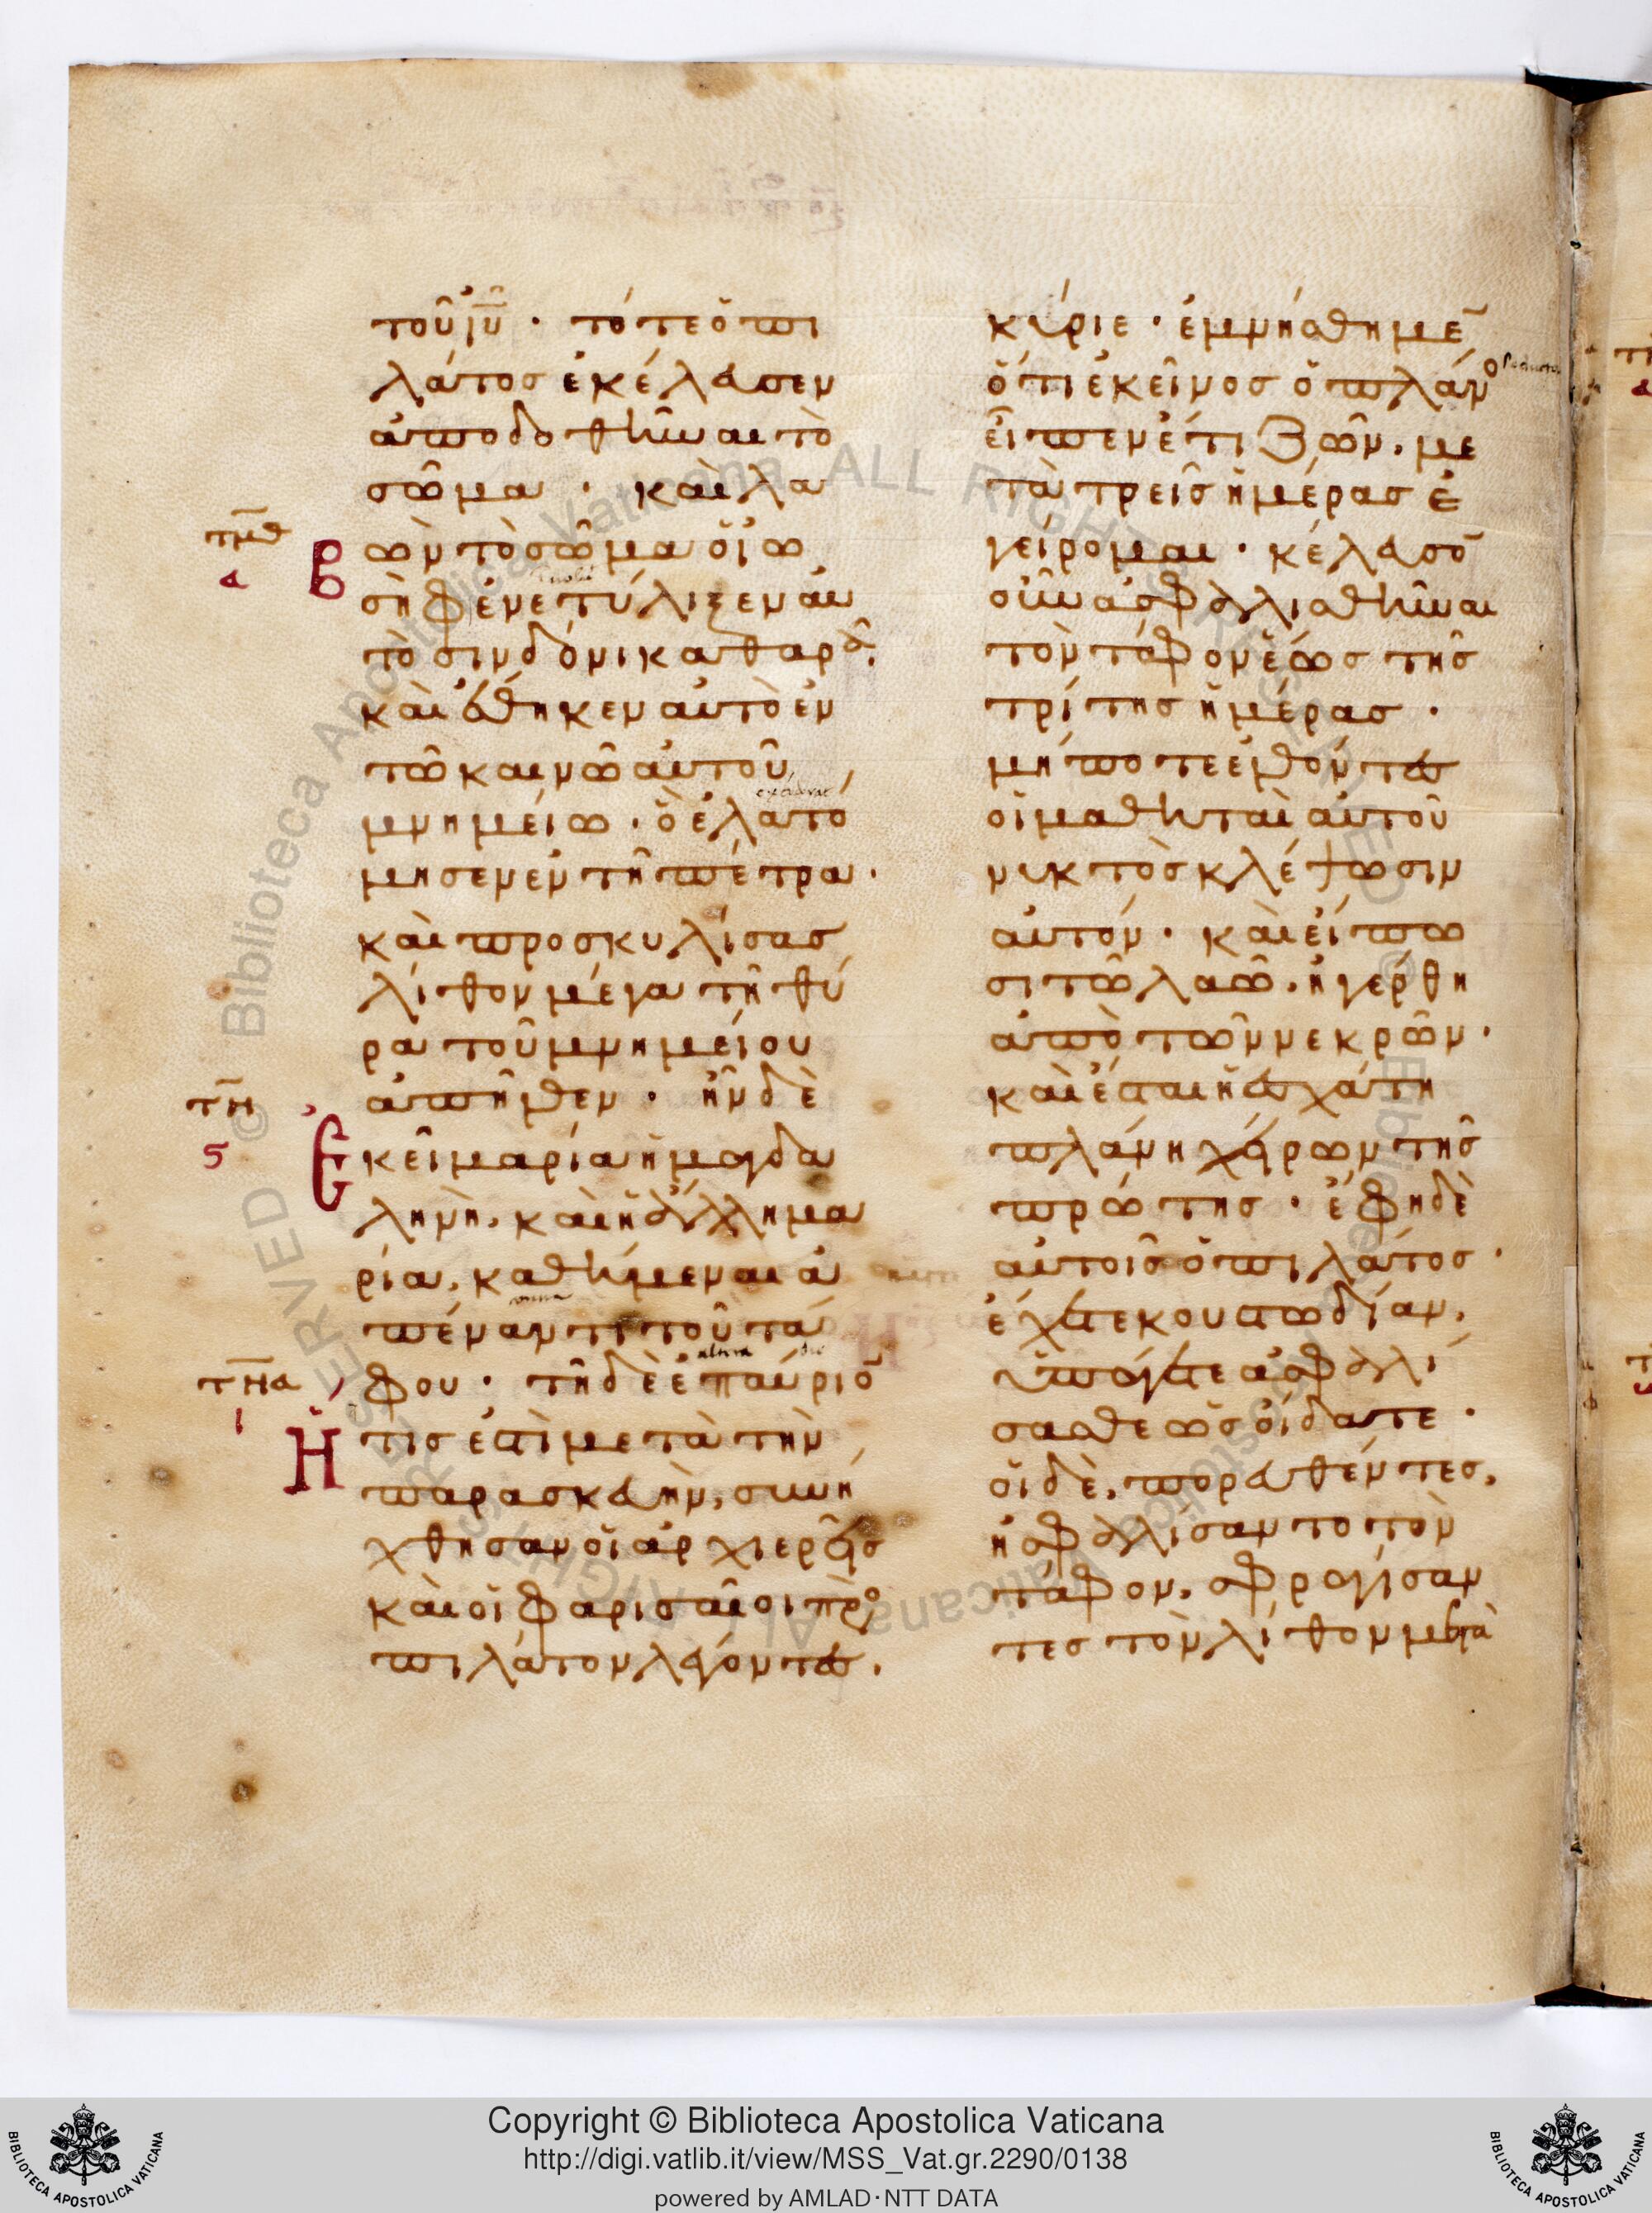 τοῦ ἰῦ · τότε ὁ πι
λάτος ἐκέλευσεν
ἀποδοθῆναι τὸ
σῶμα · καὶ λα
τμθ
δ
β
ὼν τὸ σῶμα ὁ ἰω
σὴφ ἐνετύλιξεν αὐ
τὸ σινδόνι καθαρᾶ.
καὶ ἔθηκεν αὐτὸ ἐν
τῶ καινῶ αὐτοῦ
μνημείω · ὃ ἐλατό
μησεν ἐν τῆ πέτρα ·
καὶ προσκυλίσας
λίθον μέγα τῆ θύ
ρα τοῦ μνημείου
ἀπῆλθεν · ἦν δὲ
τν
ϛ
Ἐ
κεῖ μαρία ἡ μαγδα
ληνὴ, καὶ ἡ ἄλλη μα
ρία, καθήμεναι ἀ
πέναντι τοῦ τά
φου · τῆ δὲ ἐπαύριο̄
τνα
ι
Ἥ
τις ἐστὶ μετὰ τὴν
παρασκευὴν, συνή
χθησαν οἱ ἀρχιερεῖς
καὶ οἱ φαρισαῖοι πρὸ
πιλάτον λέγοντες,
κύριε · ἐμνήσθημε̄
ὅτι ἐκεῖνος ὁ πλάνο
εἶπεν ἔτι ζῶν, με
τὰ τρεῖς ἡμέρας ἐ
γείρομαι · κέλευσο̄
οὖν ἀσφαλισθῆναι
τὸν τάφον ἕως τῆς
τρίτης ἡμέρας ·
μήποτε ἐλθόντες
οἱ μαθηταὶ αὐτοῦ
νυκτὸς κλέψωσιν
αὐτόν · καὶ εἴπω
σι τῶ λαῶ, ἠγέρθη
ἀπὸ τῶν νεκρῶν ·
καὶ ἔσται ἡ ἐσχάτη
πλάνη χείρων τῆς
πρώτης · ἔφη δὲ
αὐτοῖς ὁ πιλάτος ·
ἔχετε κουστωδίαν,
ὑπάγετε ἀσφαλί
σασθε ὡς οἴδατε ·
οἱ δὲ, πορευθέντες,
ἠσφαλίσαντο τὸν
τάφον, σφραγίσαν
τες τὸν λίθον μετὰ
Copyright © Biblioteca Apostolica Vaticana
http://digi.vatlib.it/view/MSS_Vat.gr.2290/0138
powered by AMLAD·NTT DATA
BIBLIOTECA APOSTOLICA VATICANA
BIBLIOTECA APOSTOLICA VATICANA